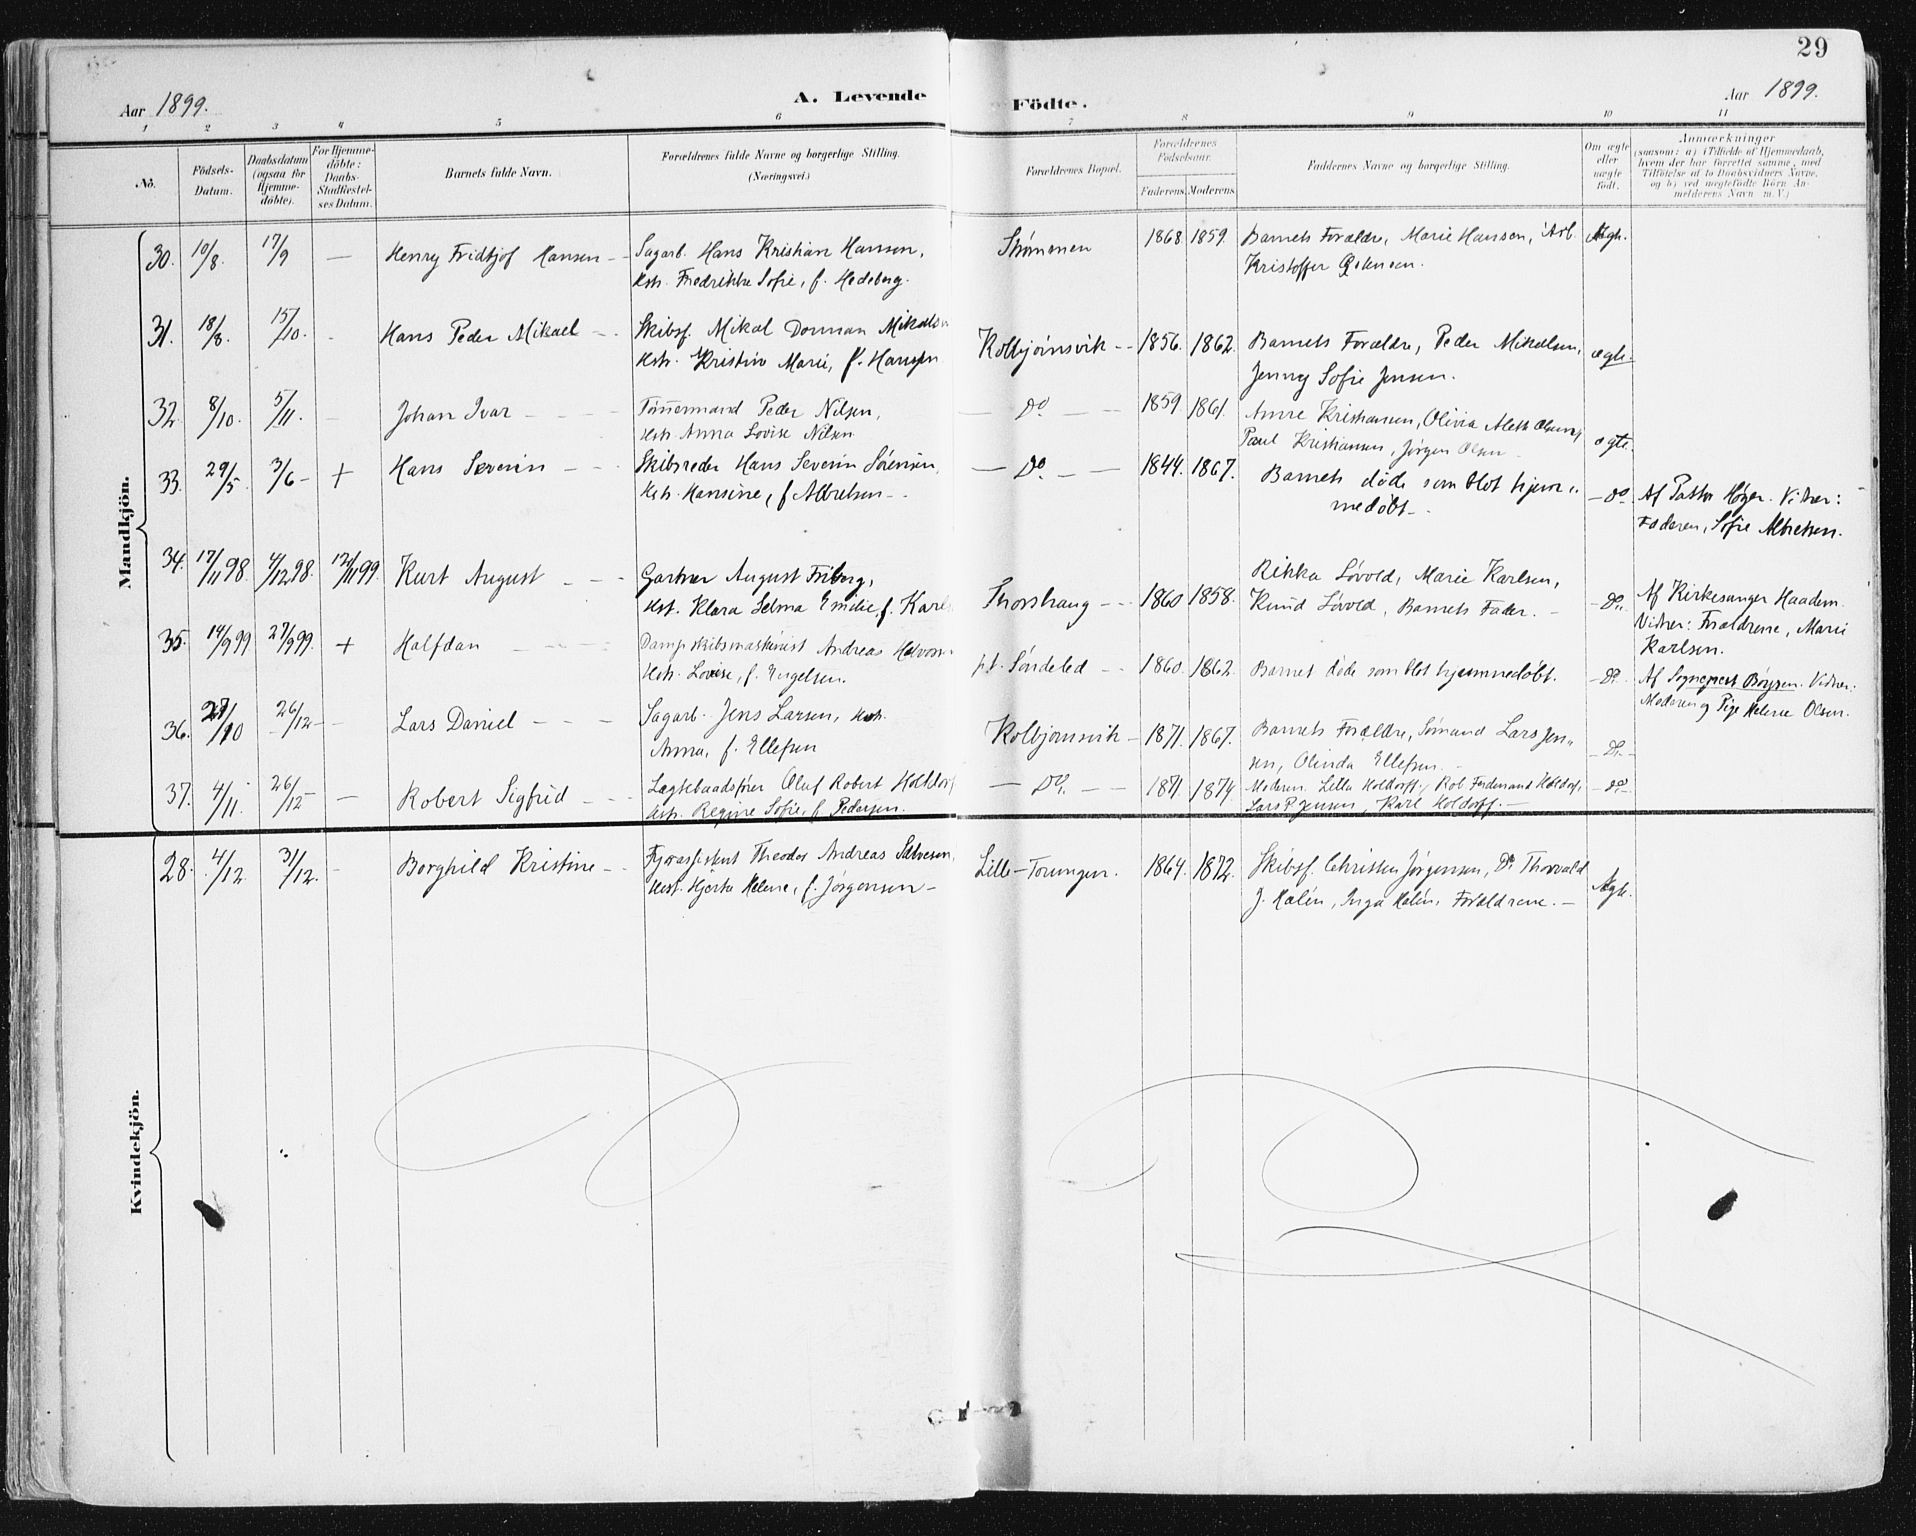 29
Aar 1899.
A. Levende Födte.
Aar 1899.
1 2 3 4 5 6 7 8 9 10 11
No.
Födsels-
Datum.
Daabsdatum
(ogsaa for
Hjemme-
döbte).
For Hjemme-
döbte:
Daabs-
Stadfæstel-
ses Datum.
Barnets fulde Navn.
Forældrenes fulde Navne og borgerlige Stilling.
(Næringsvei.)
Forældrenes Bopæl.
Forældrenes
Födselsaar.
Faderens. Moderens.
Faddernes Navne og borgerlige Stilling.
Om ægte
eller
uægte
født.
Anmærkninger
(saasom: a) i Tilfælde af Hjemmedaab,
hvem der har forrettet samme, med
Tilföielse af to Daabsvidners Navne,
og b) ved uægtefödte Börn An-
melderens Navn m. V.)
Mandkjön.
30. 10/8. 17/9 — Henry Fridtjof Hansen — Sagarb. Hans Kristian Hansen, 1868. 1859. Barnets Forældre, Marie Hansen, Arb. Ægte.
Hstr. Fredrikke Sofie, f. Hedeberg. Kristoffer
31. 18/8. 15/10. - Hans Peder Mikael — Skibsf. Mikal Dorman Mikalsen Kolbjørnsvik — 1856. 1862. Barnets Forældre, Peder Mikalsen, ægte
Hstr. Kristine Marie, f. Hansen Jenny Sofie Jensen.
32. 8/10. 5/11. — Johan Ivar — Tømmermand Peder Nilsen, — Do — 1859. 1861. Anne Kristiansen, Olivia Aleth Olsen, ægte.
Hstr. Anna Lovise Nilsen Paul Kristiansen, Jørgen Olsen
33. 29/5. 3/6 — + Hans Severin — Skibsreder Hans Severin Sørensen, — Do — 1844. 1867. Barnets døde som blot hjem- — Do Af Pastor Høyer. Vidner:
Hstr. Hansine, f. Albretsen — medøbt — Faderen, Sofie Albretsen.
34. 17/11 98. 4/12 98. 12/11 99. Kurt August — Gartner August Friberg, Thorshaug — 1860 1858. Rikka Løvold, Marie Karlsen, — Do. Af Kirkesanger Haadem.
Hst. Klara Selma Emilie, f. Karls Knud Løvold, Barnets Fader. — Vidner: Forældrene, Marie
Karlsen.
35. 14/9 99 27/9 99. + Halfdan — Dampskibsmaskinist Andreas Halvorsen p.t. Søndeled — 1860. 1862. Barnet døde som blot hjemmedøbt. — Do. Af Sognepræst Børysen. Vidner:
Hstr. Lovise, f. Engelsen. Moderen og Pige Helene Olsen.
36. 27/10 26/12 — Lars Daniel — Sagarb. Jens Larsen, Hstr. Kolbjørnsvik — 1871. 1867. Barnets Forældre, Sømand Lars Jen- — Do —
Anna, f. Ellefsen sen, Olinda Ellefsen. —
37. 4/11. 26/12 — Robert Sigfrid — Lægtebaadsfører Oluf Robert Holdorf — Do. — 1871. 1874. Moderen. Lilla Holdorff, Rob Ferdinand Holdorf, — Do —
Hstr. Regine Sofie, f. Pedersen. Lars P. Jensen, Karl Holdorff. —
Kvindekjön.
28. 4/12. 31/12. - Borghild Kristine — Fyrassistent Theodor Andreas Salvesen, Lille-Torungen. 1864. 1872. Skibsf. Christen Jørgensen, Do Thorvald Ægte.
Hst. Hjerta Helene, f. Jørgensen — J. Halén, Inga Halén, Forældrene. —